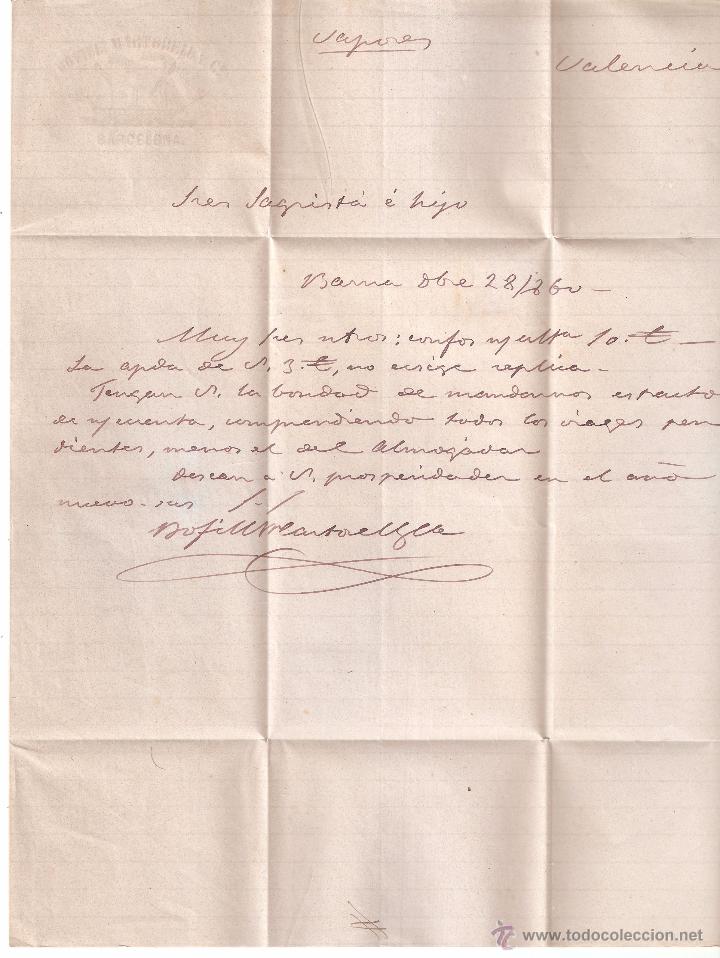 Vapores
Valencia
BOFILL MARTORELL Y Cª
BARCELONA
Sres Sagristá é hijo
Barna Dbe 28/860
Muy Sres ntros: 10.
La apda de V. 3. no exige replica
Tengan V. la bondad de mandarnos estracto
de n/ cuenta, comprendiendo todos los viages pen
dientes, menos el del Almogávar
desean a V. prosperidades en el año
nuevo sus
Bofill Martorell y Cia
www.todocoleccion.net